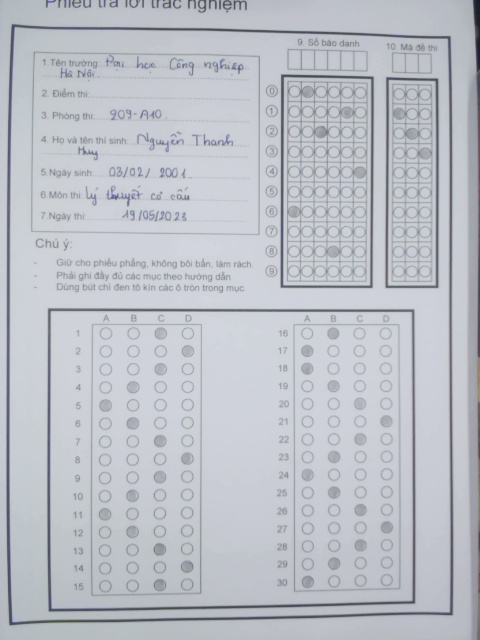 Phiếu trả lời trắc nghiệm
1.Tên trường: Đại học Công nghiệp
Hà Nội
2. Điểm thi:
3. Phòng thi: 209-A10
4. Họ và tên thí sinh: Nguyễn Thanh
Huy
5.Ngày sinh: 03/02/2001
6.Môn thi: Lý thuyết cơ cấu
7.Ngày thi: 19/05/2023
Chú ý:
- Giữ cho phiếu phẳng, không bôi bẩn, làm rách.
- Phải ghi đầy đủ các mục theo hướng dẫn.
- Dùng bút chì đen tô kín các ô tròn trong mục.
9. Số báo danh
10. Mã đề thi
0
1
2
3
4
5
6
7
8
9
A B C D
1
2
3
4
5
6
7
8
9
10
11
12
13
14
15
A B C D
16
17
18
19
20
21
22
23
24
25
26
27
28
29
30